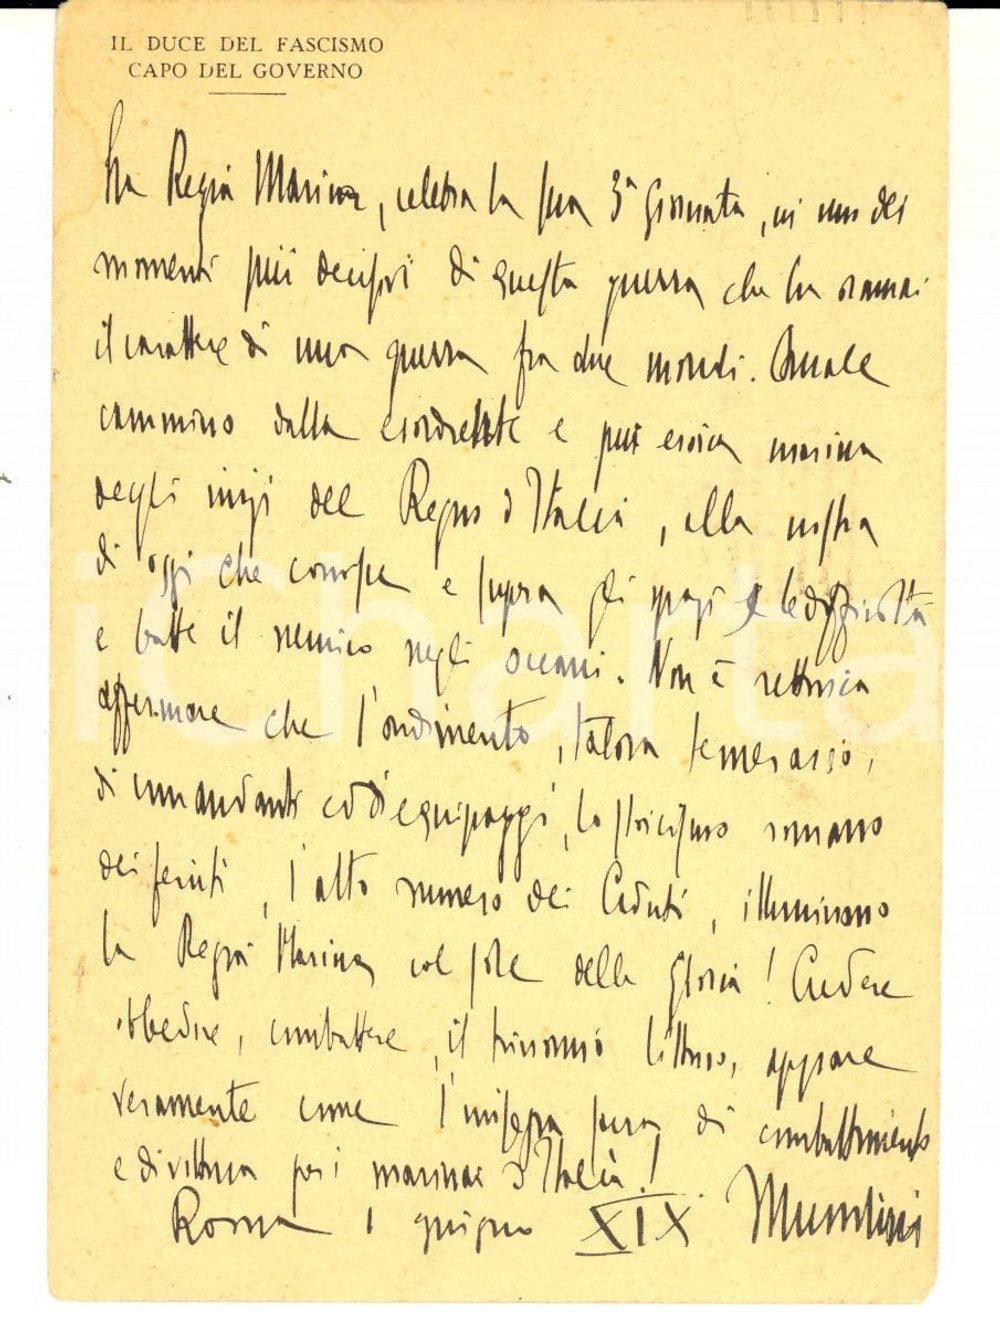 IL DUCE DEL FASCISMO
CAPO DEL GOVERNO
La Regia Marina, celebra la sua 3ª Giornata, in uno dei
momenti più decisivi di questa guerra che ha oramai
il carattere di una guerra fra due mondi. Quale
cammino dalla esordiente e pur eroica marina
degli inizi del Regno d'Italia, alla nostra
di oggi che conosce e supera gli spazi e le difficoltà
e batte il nemico negli oceani. Non è rettorica
affermare che l'ardimento, talora temerario,
di comandanti ed equipaggi, lo stoicismo romano
dei feriti, l'alto numero dei Caduti, illuminano
la Regia Marina col sole della Gloria! Credere
obbedire, combattere, il trinomio littorio, appare
veramente come l'insegna sacra di combattimento
e di vittoria per i marinai d'Italia!
Roma 1 giugno XIX Mussolini
iCharta